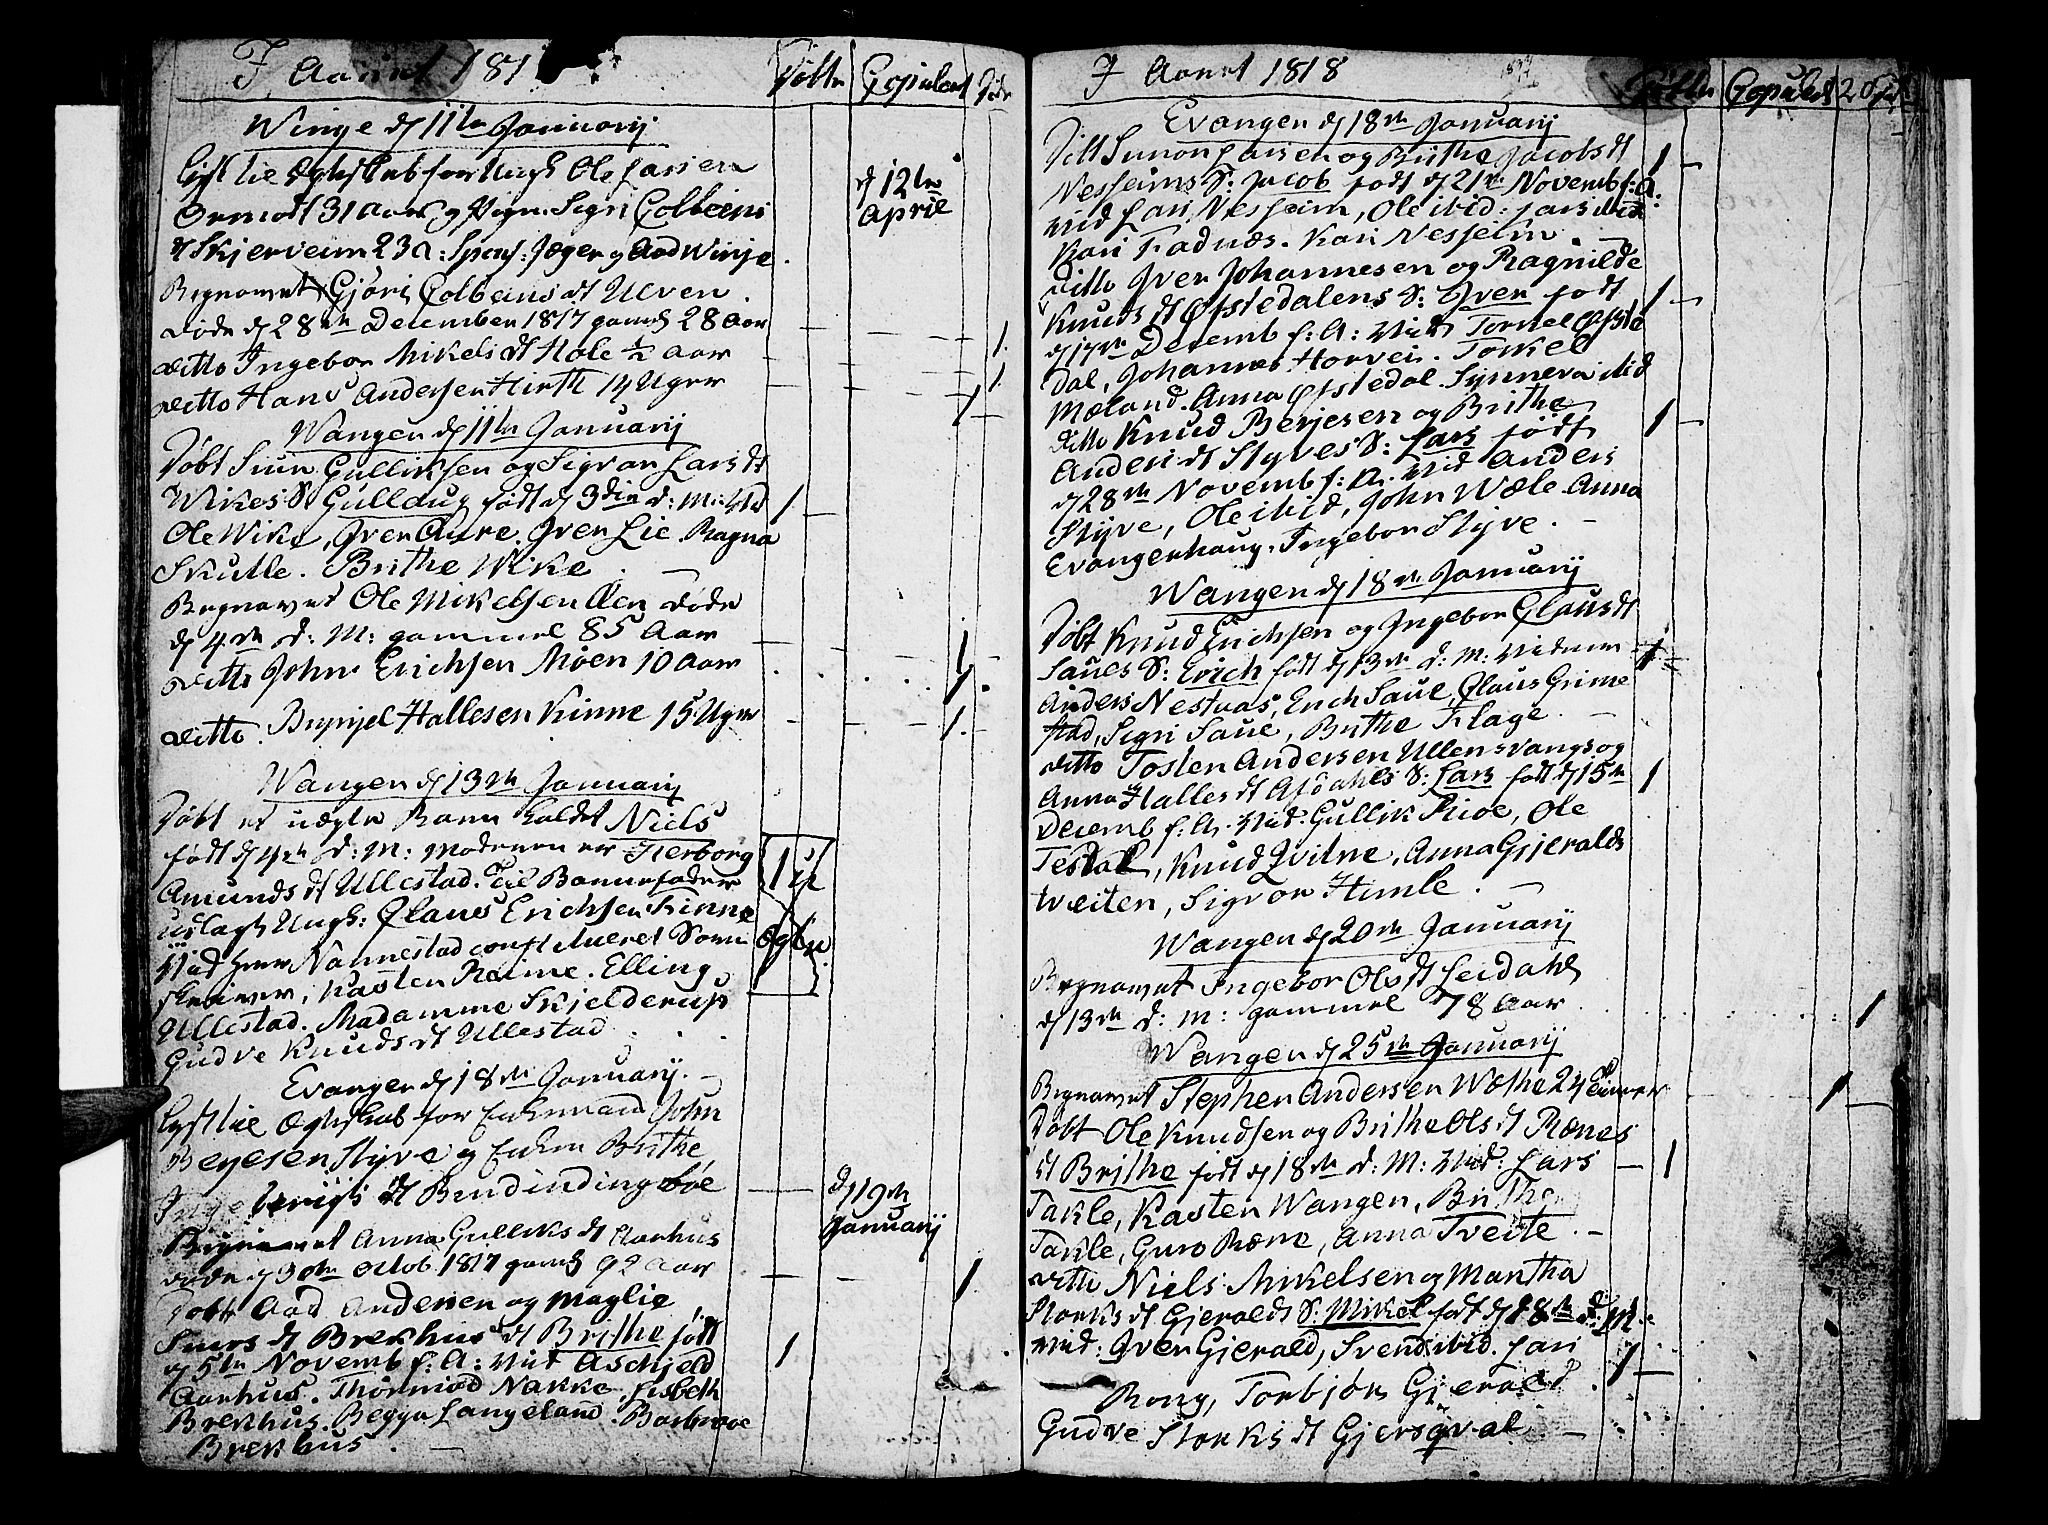 I Aaret 181
Døbte Copuleret Døde
Winge d 11te Januarij
Lyst til Ægteskab for Ungk Ole Larsen
Ormost 31 Aar og Pigen Sigri Colbeens
dt Skjerveim 23 a: Spons: Jæger og Aad Winje
d 12te
April
Begravet Gjøri Colbeens dt Ulven
døde d 28de December 1817 gaml 28 Aar
1
ditto Ingebor Mikels dt Hole ½ Aar
1
ditto Hans Andersen Hirth 14 Uger
1
Wangen d 11te Januarij
Døbt Siur Gulliksen og Sigvor Lars dt
Wikes S: Gulldug født d 3die d: M: Vid
1
Ole Wike, Iver Aure. Iver Lie. Ragna
Skutle. Brithe Wike
Begravet Ole Mikelsen Øen døde
d 4de d: M: gammel 85 Aar
1
ditto John Erichsen Møen 10 Aar
1
ditto Brynjel Hallesen Kinne 15 Uger
1
Wangen d 13de Januarij
Døbt et uægte Barn kaldet Niels
født d 4de d: M: Moderen er Herborg
1 u
Amunds dt Ullestad. Til Barnefader
udlagt Ungk: Claus Erichsen Rinne
Vid Herr Nannestad constitueret Soren
skriver, Kasten Reime. Elling
Ullestad. Madamme Skjelderup
Gudve Knuds dt Ullestad
Evanger d 18de Januarij
Lyst til Ægteskab for Enkemand John
Berjesen Styve og Enken Brithe
Ingebrigts dt Brudindingsbøe
d 19de
Januarij
Begravet Anna Gulliks dt Aarhus
døde d 30te Octob 1817 gaml 92 Aar
1
Døbt Aad Andersen og Maglie
Siurs dt Brekhus dt Brithe født
d 5te Novemb f: A: Vid Aschjeld
1
Aarhus. Thormod Nakke. Lisbeth
Brekhus. Begga Langeland. Barbraae
Brekhus
I Aaret 1818
Døbte Copuleret Døde
Evangen d 18de Januarij
Ditt Simon Larsen og Brithe Jacobs dt
1
Nesheims S: Jacob født d 21de Novemb f: A:
Vid Lars Nesheim, Ole ibid: Lars ibid
Kari Fadnæs. Kari Nesheim
ditto Iver Johannesen og Ragnilde
Knuds dt Øfstedalens S: Iver født
1
d 17de Decemb f: A: Vid Torkel Øfste
dal, Johannes Horvei. Torkel
Mæland. Anna Øfstedal. Synneva ibid
ditto Knud Berjesen og Brithe
1
Anders dt Styves S: Lars født
d 28de Novemb f: A. Vid Anders
Styve, Ole ibid, John Wæle. Anna
Evangerhaug. Ingebor Styve
Wangen d 18de Januarij
Døbt Knud Erichsen og Ingebor Claus dt
Saues S: Erich født d 13de d: M: Vidner
1
Anders Nestaas, Erich Saue, Claus Grime
stad, Sigri Saue, Brithe Flage
ditto Tosten Andersen Ullensvangs og
Anna Halles dt Afdahls S: Lars født d 15de
1
Decemb f: A. Vid: Gullik Rioe, Ole
Tesdal, Knud Qvitne, Anna Gjeralds
tveiten, Sigvor Himle
Wangen d 20de Januarij
Begravet Ingebor Ols dt Leidahl
d 13de d: M: gammel 78 Aar
1
Wangen d 25de Januarij
Begravet Stephen Andersen Wæthe 24
1
Døbt Ole Knudsen og Brithe Ols dt Rænes
dt Brithe født d 18de d: M: Vid: Lars
1
Takle, Kasten Wangen, Brithe
Takle, Guro Ræne, Anna Tveite
ditto Niels Mikelsen og Martha
Storks dt Gjeralds S: Mikel født d 18de d: M:
Vid: Iver Gjerald, Svend ibid. Lars
1
Rong, Torbjør Gjerald
Gudve Storks dt Gjersqval